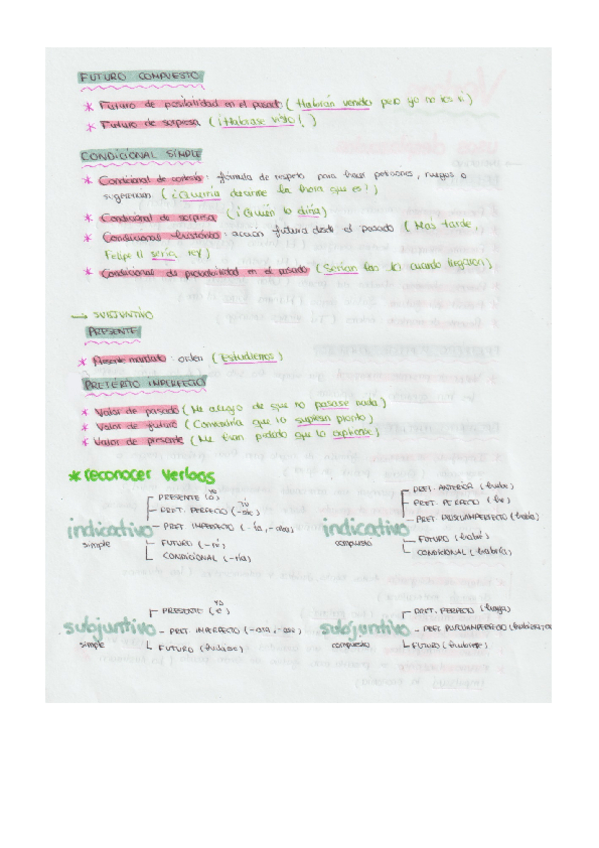 FUTURO COMPUESTO
* Futuro de posibilidad en el pasado (Habrán venido pero yo no les vi)
* Futuro de sorpresa (¡Habrase visto!)
CONDICIONAL SIMPLE
* Condicional de cortesía: fórmula de respeto para hacer peticiones, ruegos o
sugerencias (¿Querría decirme la hora que es?)
* Condicional de sorpresa (¡Quién lo diría)
* Condicional histórico: acción futura desde el pasado (Más tarde,
Felipe II sería rey)
* Condicional de probabilidad en el pasado (Serían las 10 cuando llegaron)
→ SUBJUNTIVO
PRESENTE
* Presente mandato: orden (Estudiemos)
PRETÉRITO IMPERFECTO
* Valor de pasado (Me alegro de que no pasase nada)
* Valor de futuro (Convendría que lo supieran pronto)
* Valor de presente (Me han pedido que lo explicase)
* reconocer verbos
indicativo
simple
PRESENTE (o) yo
PRET. PERFECTO (-ste) TÚ
PRET IMPERFECTO (-ía, -aba)
FUTURO (-ré)
CONDICIONAL (-ría)
indicativo
compuesto
PRET. ANTERIOR (hube)
PRET. PERFECTO (he)
PRET. PLUSCUAMPERFECTO (había)
FUTURO (habré)
CONDICIONAL (habría)
subjuntivo
simple
PRESENTE (e) yo
PRET. IMPERFECTO (-ara, -ase)
FUTURO
subjuntivo
compuesto
PRET. PERFECTO (haya)
PRET. PLUSCUAMPERFECTO
FUTURO (hubiere)